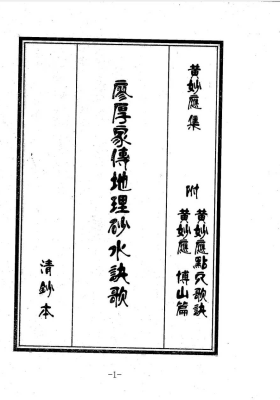 黄妙應集
附 黄妙應點穴歌訣
黄妙應 博山篇
廖厚家傳地理砂水訣歌
清鈔本
-1-